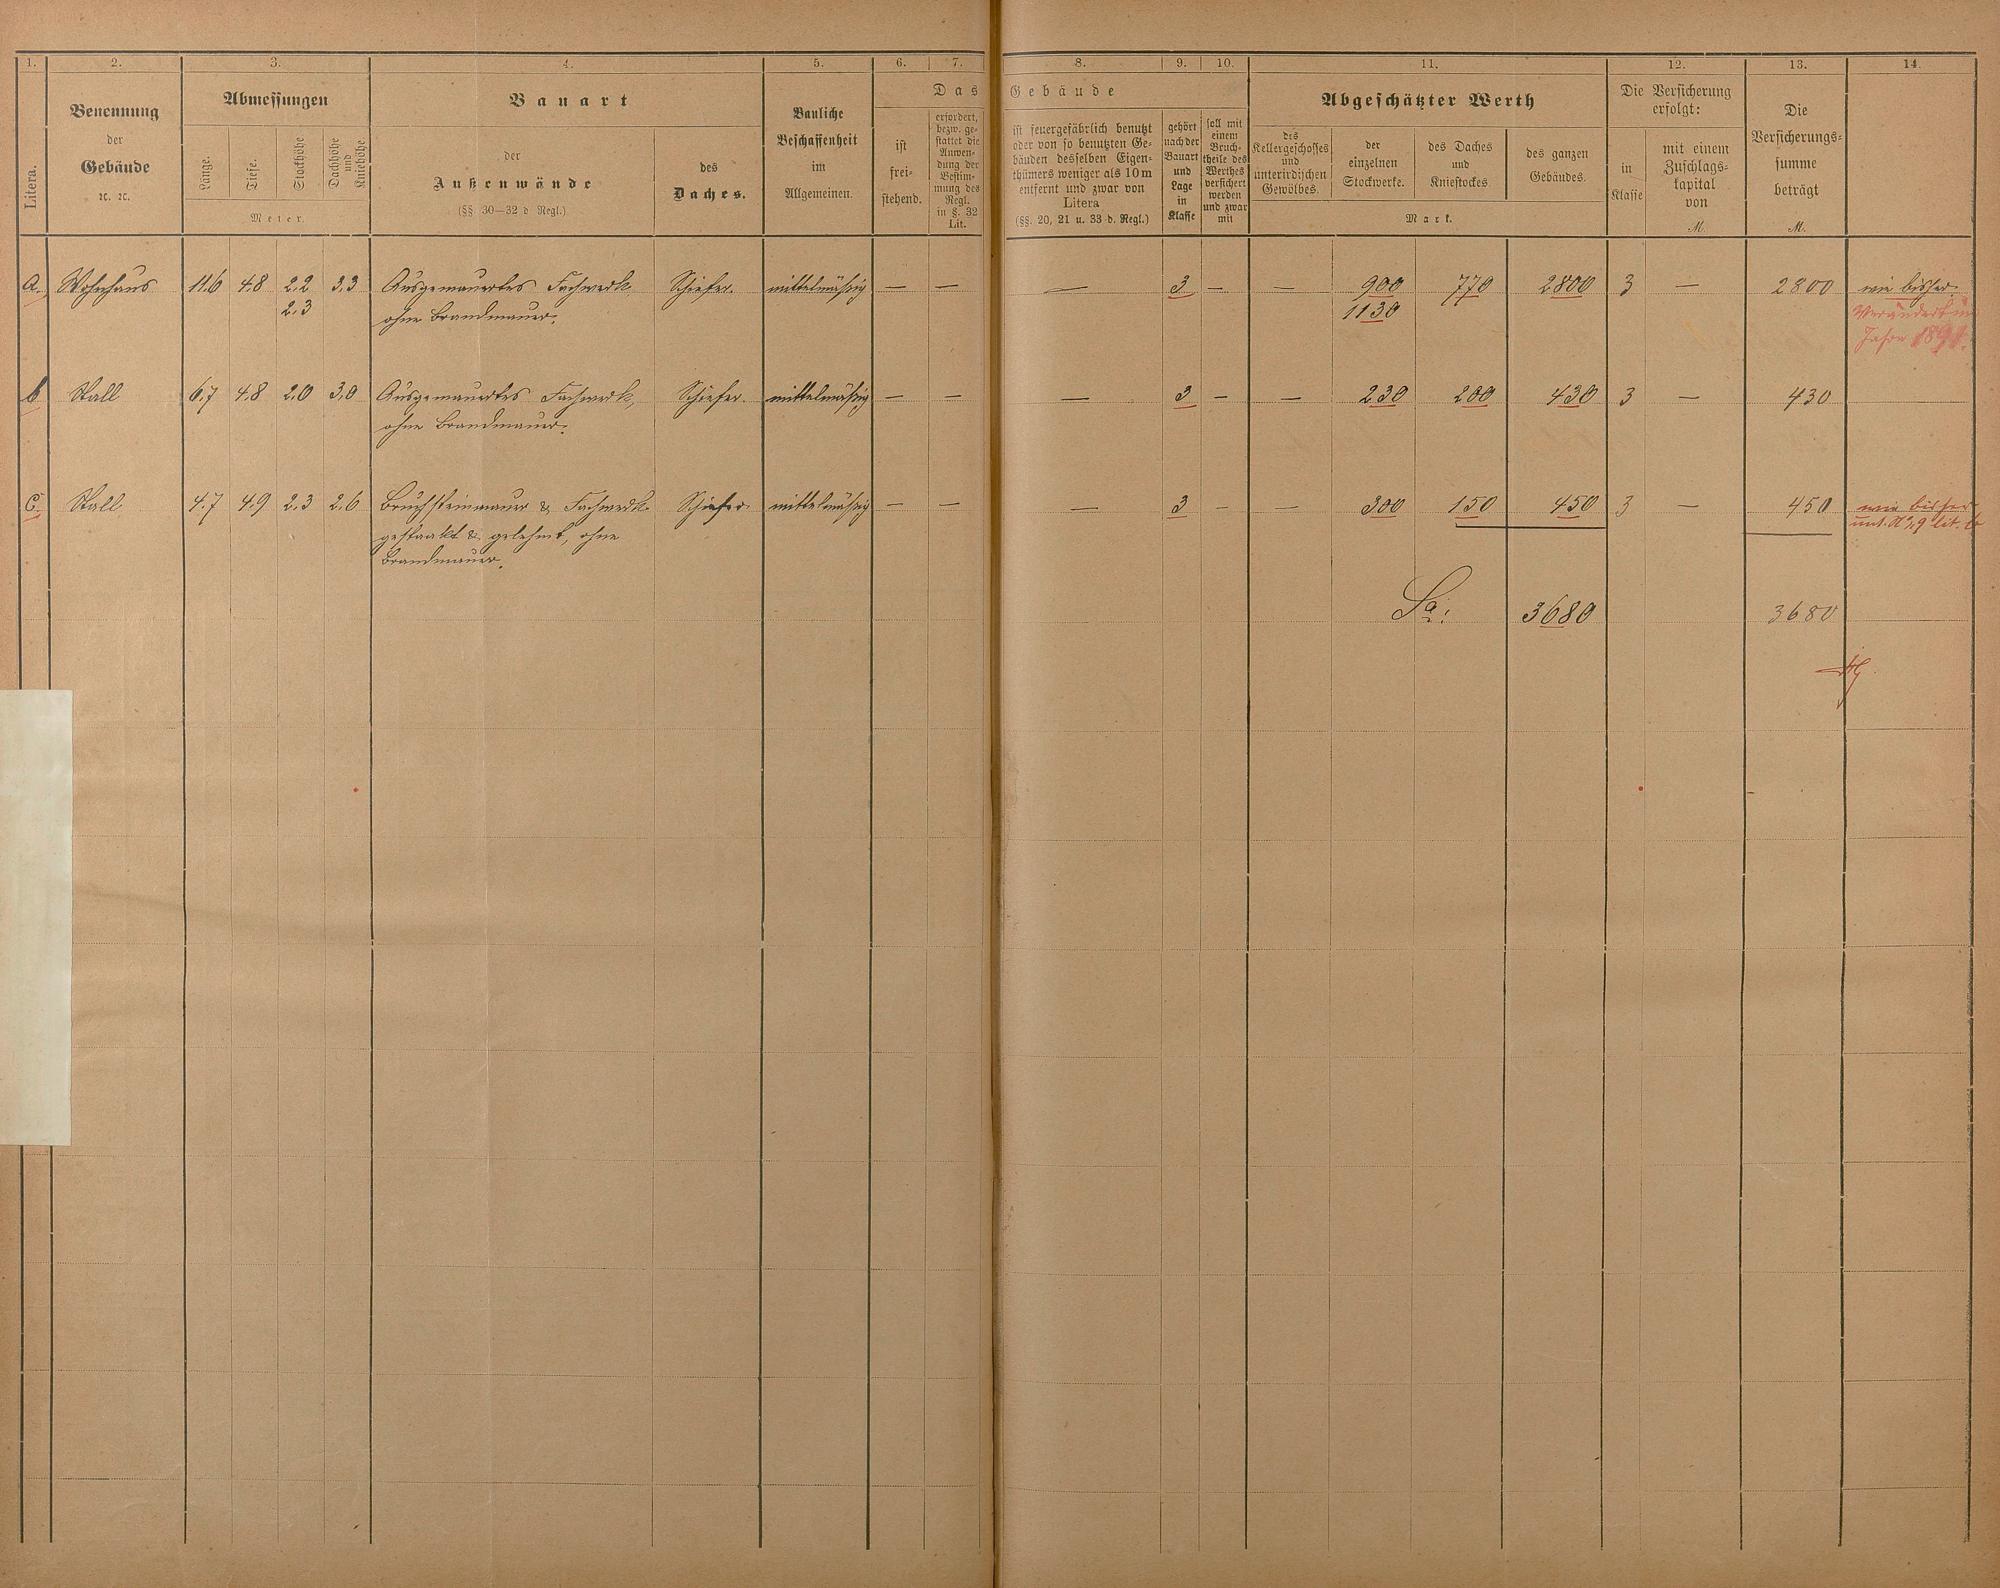 1. 2. 3. 4. 5. 6. 7. 8. 9. 10. 11. 12. 13. 14.
Litera.
Benennung
der
Gebäude
ꝛc. ꝛc.
Abmessungen
Länge.
Tiefe.
Stockhöhe
Dachhöhe
und
Kniehöhe
Meter.
Bauart
der
Außenwände
(§§ 30—32 d Regl.)
des
Daches.
Bauliche
Beschaffenheit
im
Allgemeinen.
Das Gebäude
ist
frei-
stehend.
erfordert,
bezw. ge-
stattet die
Anwen-
dung der
Bestim-
mung des
Regl.
in §. 32
Lit.
ist feuergefährlich benutzt
oder von so benutzten Ge-
bäuden desselben Eigen-
thümers weniger als 10 m
entfernt und zwar von
Litera
(§§. 20, 21 u. 33 d. Regl.)
gehört
nach der
Bauart
und
Lage
in
Klasse
soll mit
einem
Bruch-
theile des
Werthes
versichert
werden
und zwar
mit
Abgeschätzter Werth
des
Kellergeschosses
und
unterirdischen
Gewölbes.
der
einzelnen
Stockwerke.
des Daches
und
Kniestockes.
des ganzen
Gebäudes.
Mark.
Die Versicherung
erfolgt:
in
Klasse
mit einem
Zuschlags-
kapital
von
M.
Die
Versicherungs-
summe
beträgt
M.
a. Wohnhaus 11.6 4.8 2.2 3.3 Ausgemauertes Fachwerk Schiefer. mittelmäßig — — — 3 — — 900 770 2800 3 — 2800 wie bisher.
2.3 ohne Brandmauer. 1130 Verändert im
Jahre 1891.
b Stall 6.7 4.8 2.0 3.0 Ausgemauertes Fachwerk, Schiefer. mittelmäßig — — — 3 — — 230 200 430 3 — 430
ohne Brandmauer.
c. Stall 4.7 4.9 2.3 2.6 Bruchsteinmauer & Fachwerk Schiefer. mittelmäßig — — — 3 — — 300 150 450 3 — 450 wie bisher
gestaakt & gelehmt, ohne unt. No 9 lit. b
Brandmauer.
Sa: 3680 3680